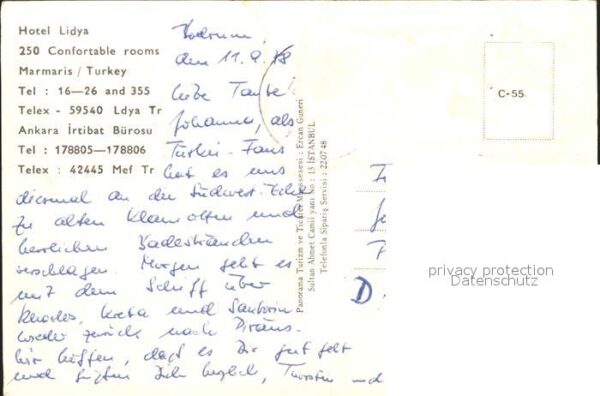 Hotel Lidya
250 Confortable rooms
Marmaris / Turkey
Tel : 16—26 and 355
Telex - 59540 Ldya Tr
Ankara İrtibat Bürosu
Tel : 178805—178806
Telex : 42445 Mef Tr
Bodrum,
den 11.9.78
Liebe Tante
Johanna, als
Türkei-Fans
hat es uns
diesmal an die Südwest-Ecke
zu alten Klamotten und
herrlichen Badestränden
verschlagen. Morgen geht es
mit dem Schiff über
Rhodos, Kreta und Santorin
wieder zurück nach Piräus.
Wir hoffen, daß es Dir gut geht
und grüßen Dich herzlich, Thorsten und
Panorama Turizm ve Ticaret Müessesesi : Ercan Güneri
Sultan Ahmet Camii yanı No : 15 İSTANBUL
Telefonla Sipariş Servisi : 220748
C-55.
D
privacy protection
Datenschutz